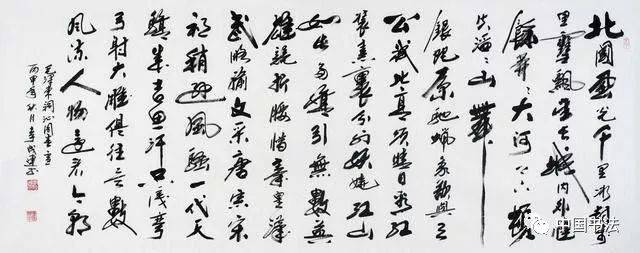 北國風光千里冰封萬
里雪飄望长城内外惟
餘莽莽大河上下頓
失滔滔山舞
銀蛇原馳蠟象欲與天
公試比高須晴日看紅
裝素裹分外妖嬈江山
如此多嬌引無數英
雄競折腰惜秦皇漢
武略輸文采唐宗宋
祖稍遜風騷一代天
驕成吉思汗只識彎
弓射大雕俱往矣數
風流人物還看今朝
毛澤東詞沁園春雪
丙申年秋月
中国书法